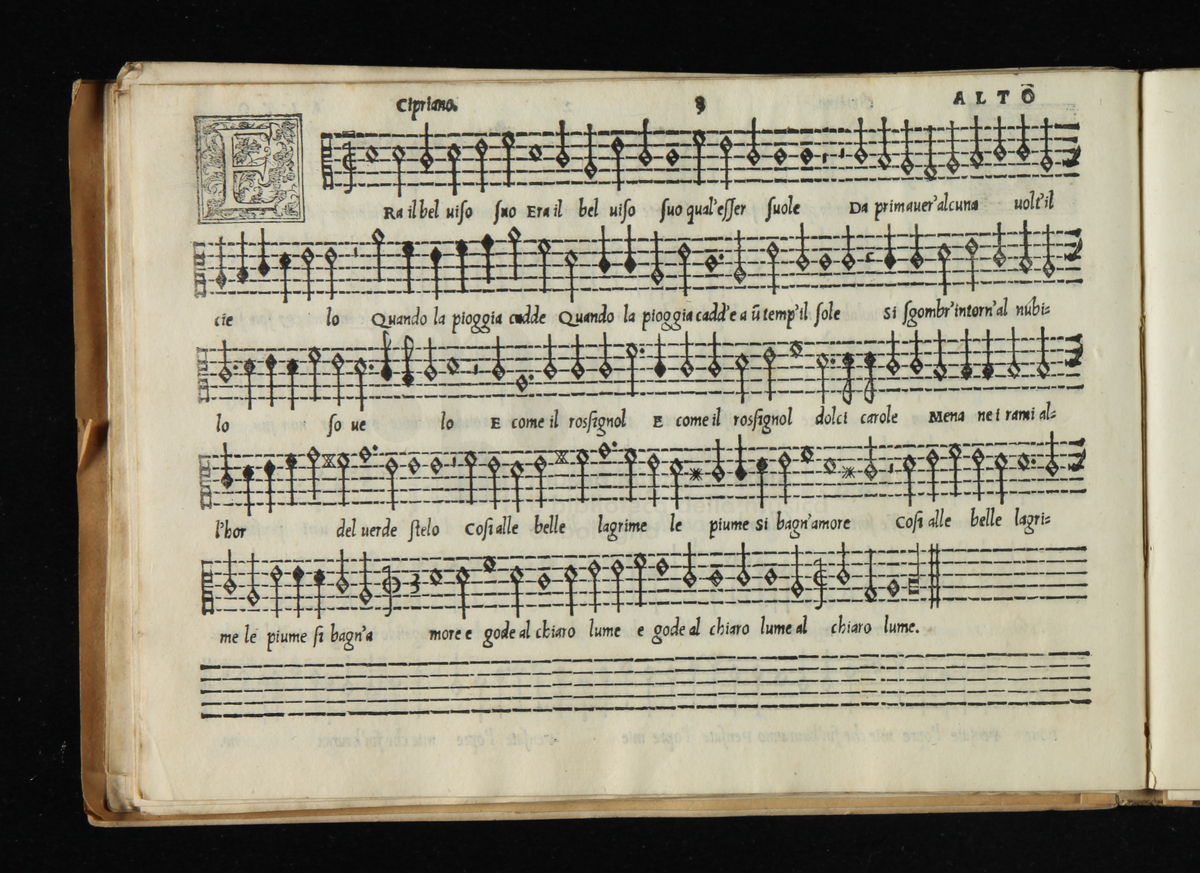 Cipriano. 8 ALTO
E Ra il bel uiso suo Era il bel uiso suo qual'esser suole Da primauer'alcuna uolt'il
cie lo Quando la pioggia cadde Quando la pioggia cadd'e a ũ temp'il sole Si sgombr'intorn'al nubi=
lo so ue lo E come il rosignol E come il rosignol dolci carole Mena ne i rami al=
l'hor del uerde stelo Cosi alle belle lagrime le piume Si bagn'amore Cosi alle belle lagri=
me le piume si bagn'a more e gode al chiaro lume e gode al chiaro lume al chiaro lume.